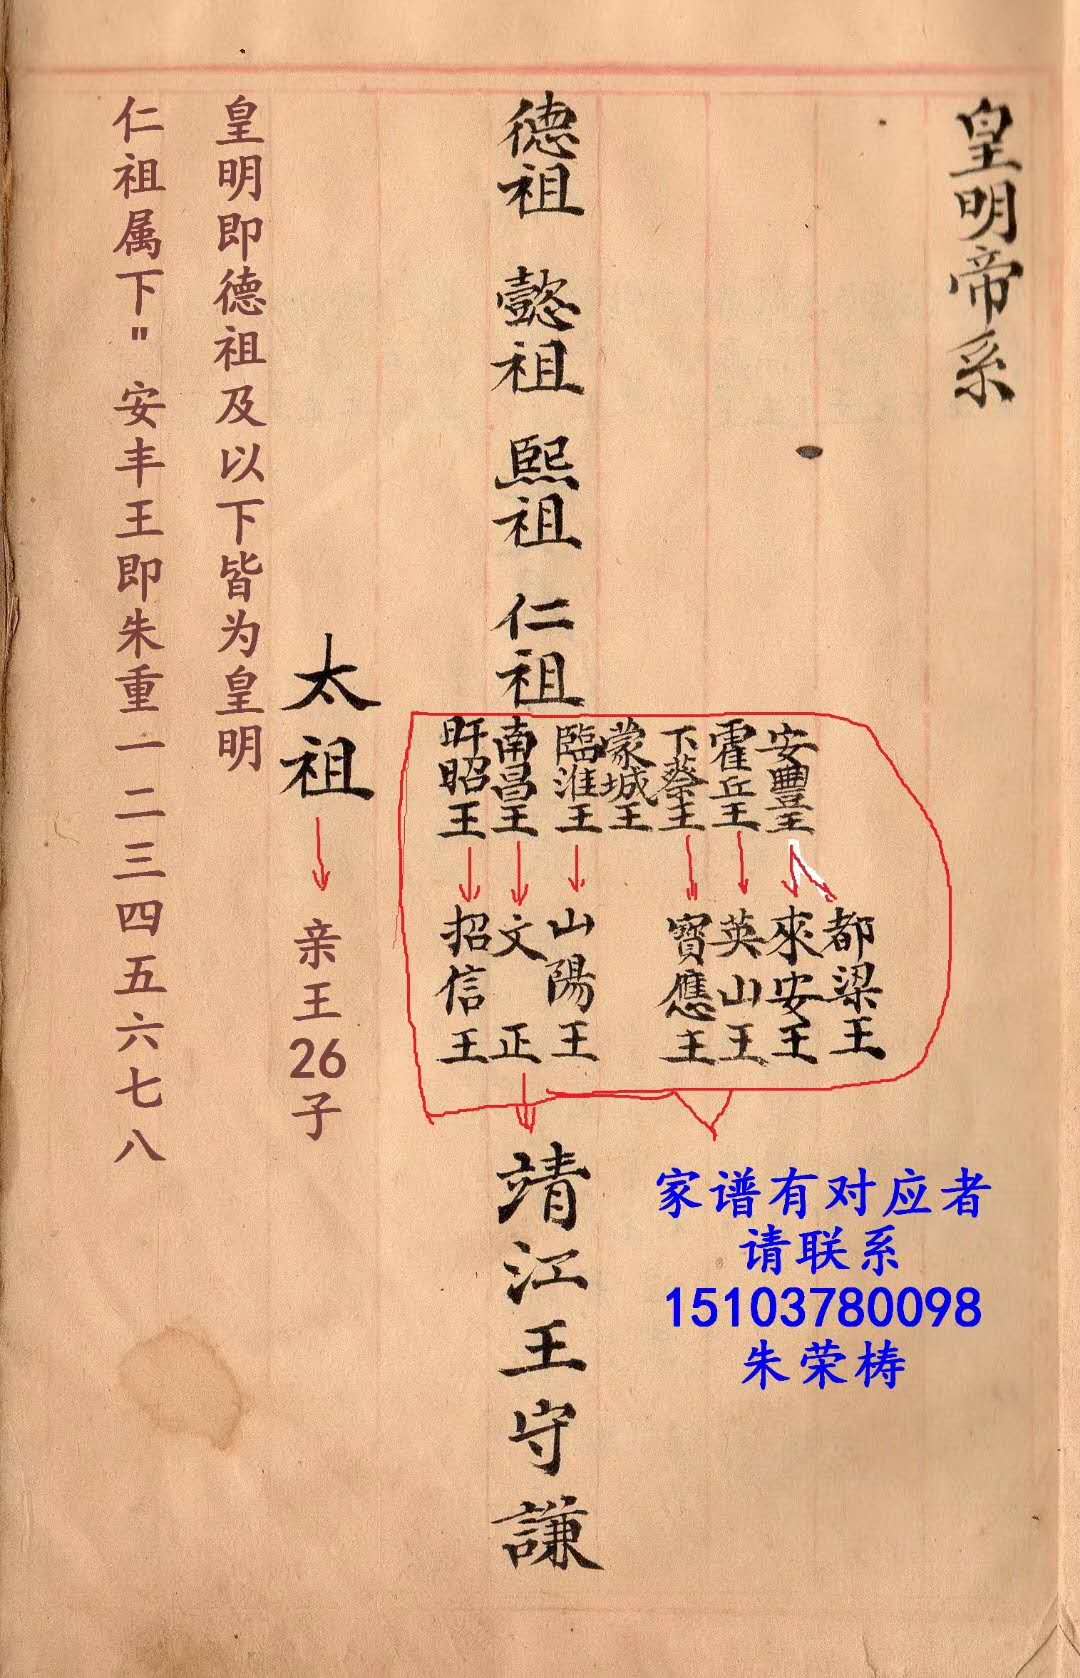 皇明帝系
德祖 懿祖 熙祖 仁祖
安豐王
霍丘王
下蔡王
蒙城王
臨淮王
南昌王
盱眙王
都梁王
來安王
英山王
寶應王
山陽王
文正
招信王
靖江王守謙
太祖
亲王26子
皇明即德祖及以下皆为皇明
仁祖属下"安丰王即朱重一二三四五六七八
家谱有对应者
请联系
15103780098
朱荣梼